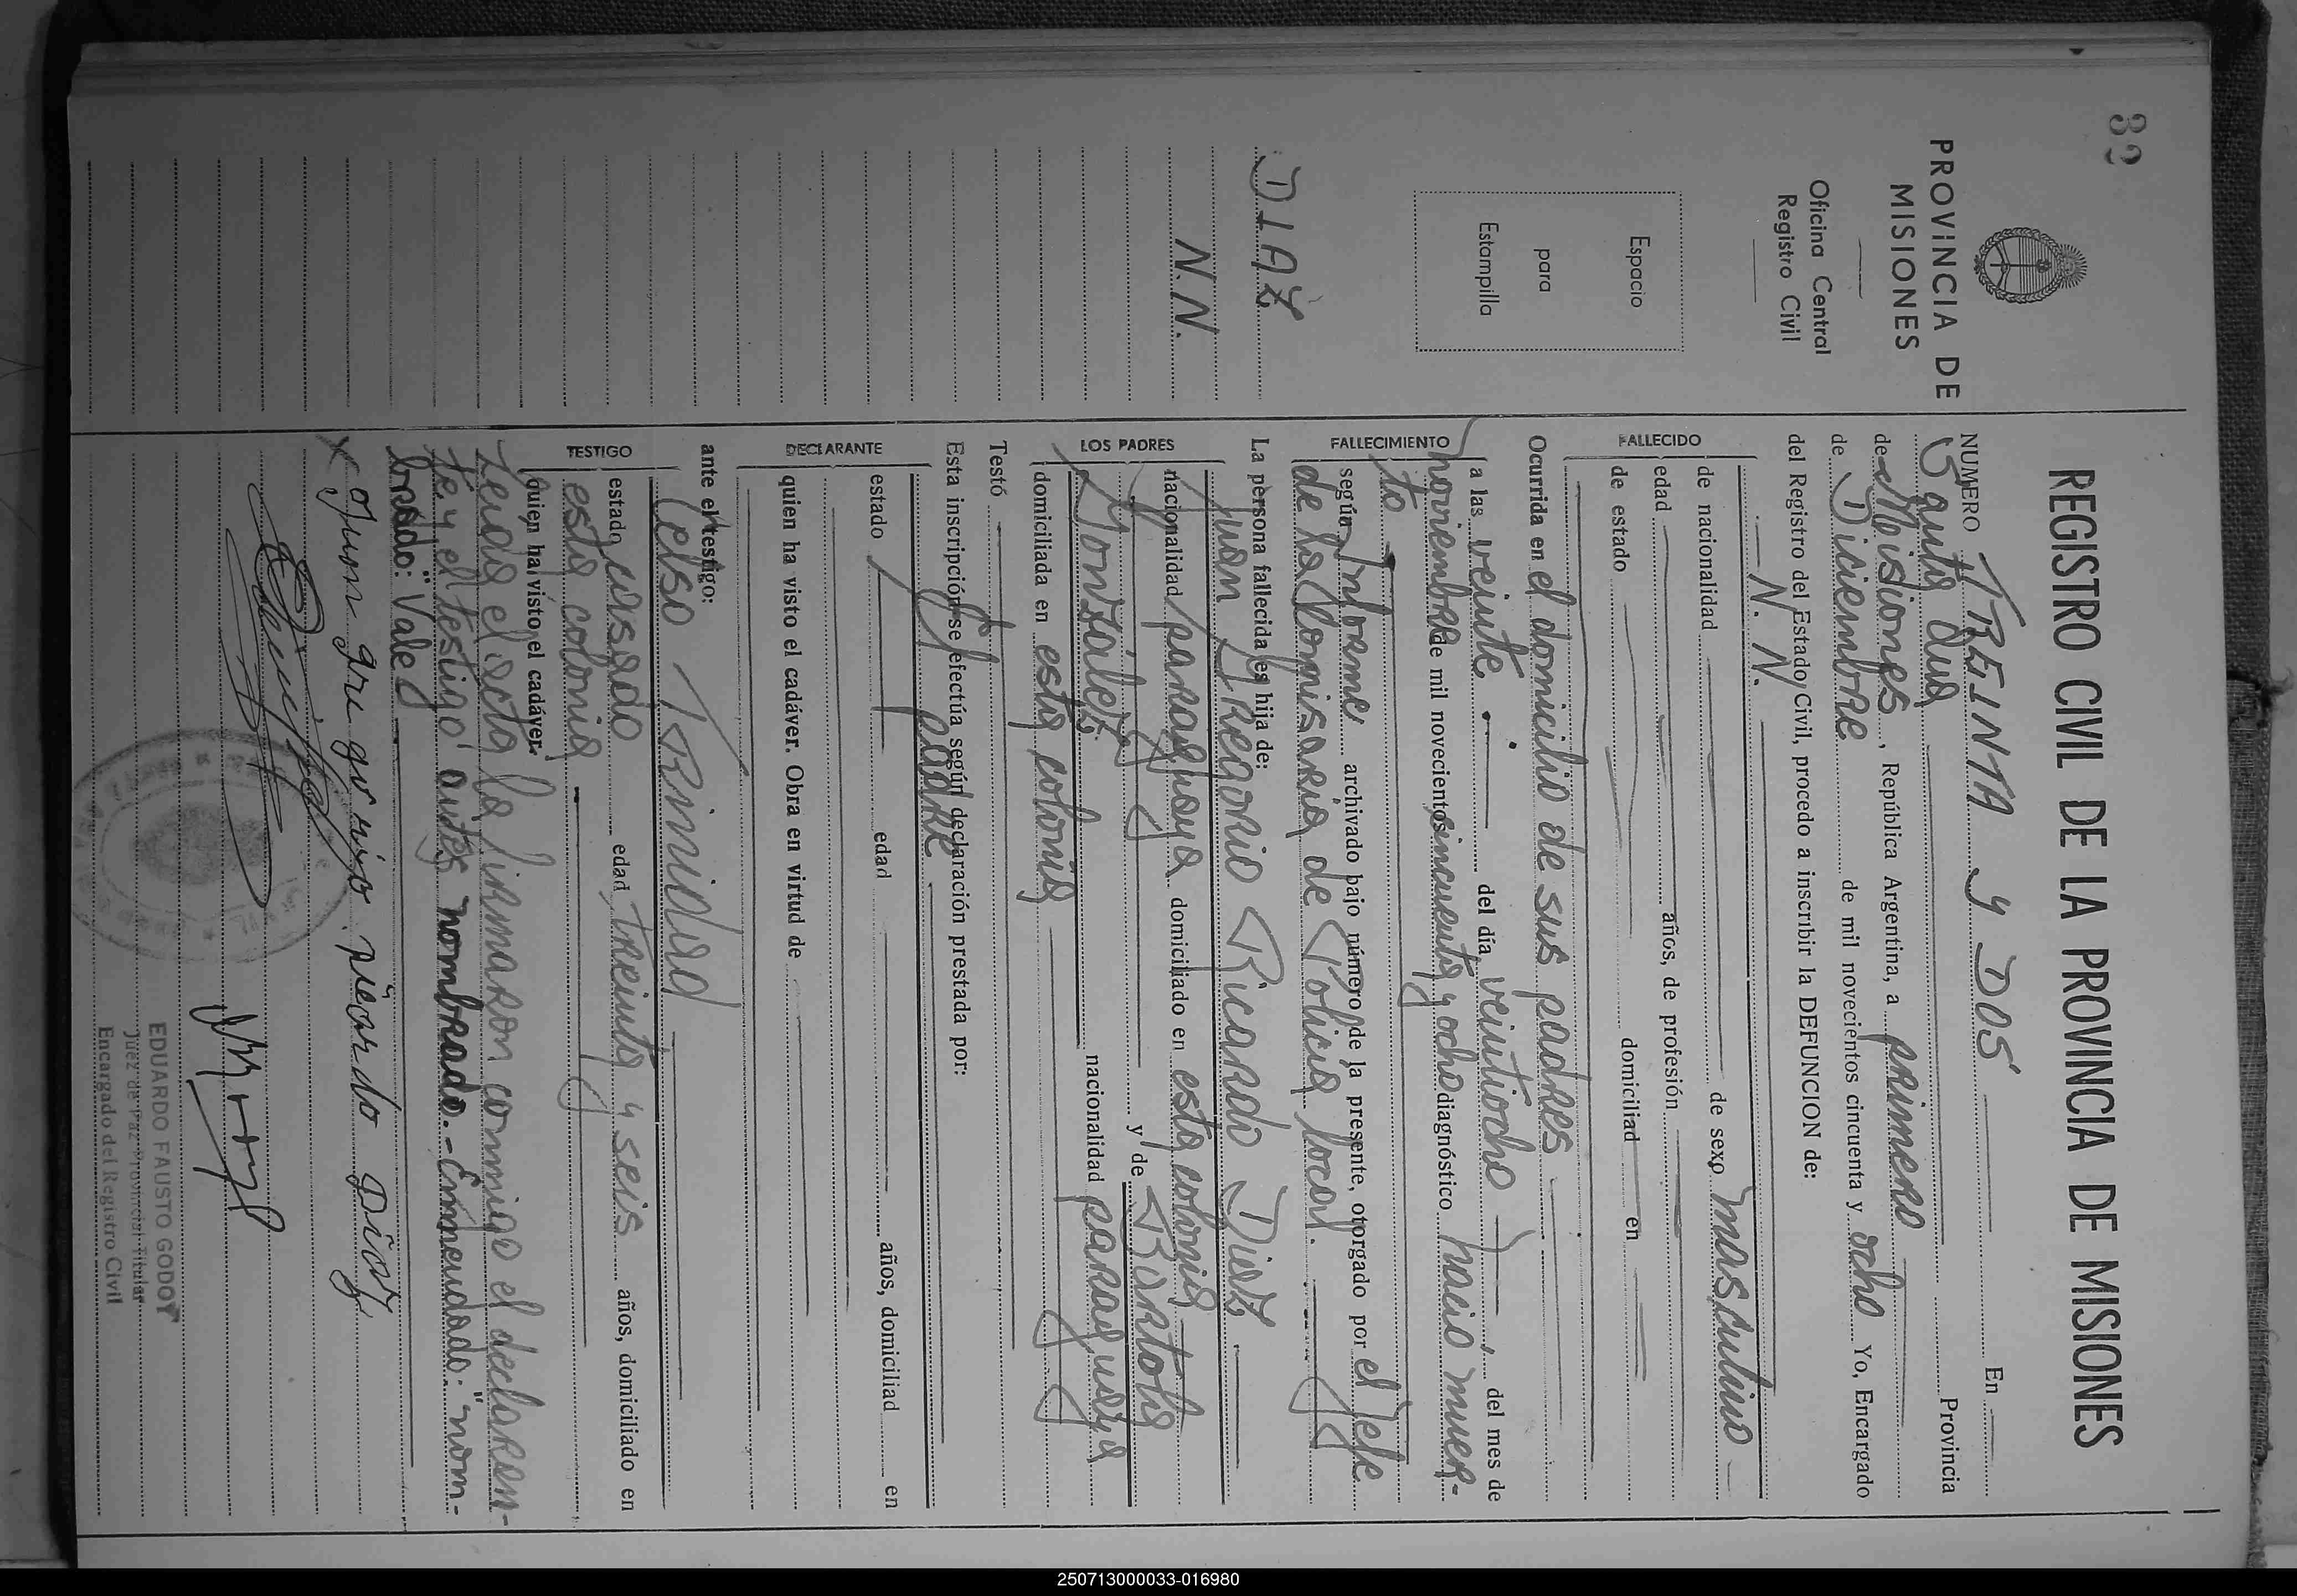 32
PROVINCIA DE
MISIONES
Oficina Central
Registro Civil
Espacio
para
Estampilla
DIAZ
N.N.
REGISTRO CIVIL DE LA PROVINCIA DE MISIONES
NUMERO TREINTA y DOS En
Santa Ana Provincia
de Misiones, República Argentina, a primero
de Diciembre de mil novecientos cincuenta y ocho Yo, Encargado
del Registro del Estado Civil, procedo a inscribir la DEFUNCION de:
N. N.
FALLECIDO
de nacionalidad de sexo masculino
edad años, de profesión
de estado domiciliad en
Ocurrida en el domicilio de sus padres
FALLECIMIENTO
a las veinte del día veintiocho, del mes de
noviembre de mil novecientos cincuenta y ocho diagnóstico nacio muer-
to
según Informe archivado bajo número de la presente, otorgado por el Jefe
de la Comisaria de Policia local.
La persona fallecida es hija de:
LOS PADRES
Juan Gregorio Ricardo Diaz
nacionalidad paraguaya domiciliado en esta colonia
y de Bartola
Gonzalez nacionalidad paraguaya
domiciliada en esta colonia
Testó
Esta inscripción se efectúa según declaración prestada por:
El padre
DECLARANTE
estado edad años, domiciliad en
quien ha visto el cadáver. Obra en virtud de
ante el testigo:
TESTIGO
Celso Trinidad
estado casado edad treinta y seis años, domiciliado en
esta colonia
quien ha visto el cadáver.
Leida el acta la firmaron conmigo el declaran-
te y el testigo antes nombrado.- Enmendado: "nom-
brado: "Vale
x Juan gregorio ricardo Diaz
EDUARDO FAUSTO GODOY
Juez de Paz Provincial Titular
Encargado del Registro Civil
250713000033-016980